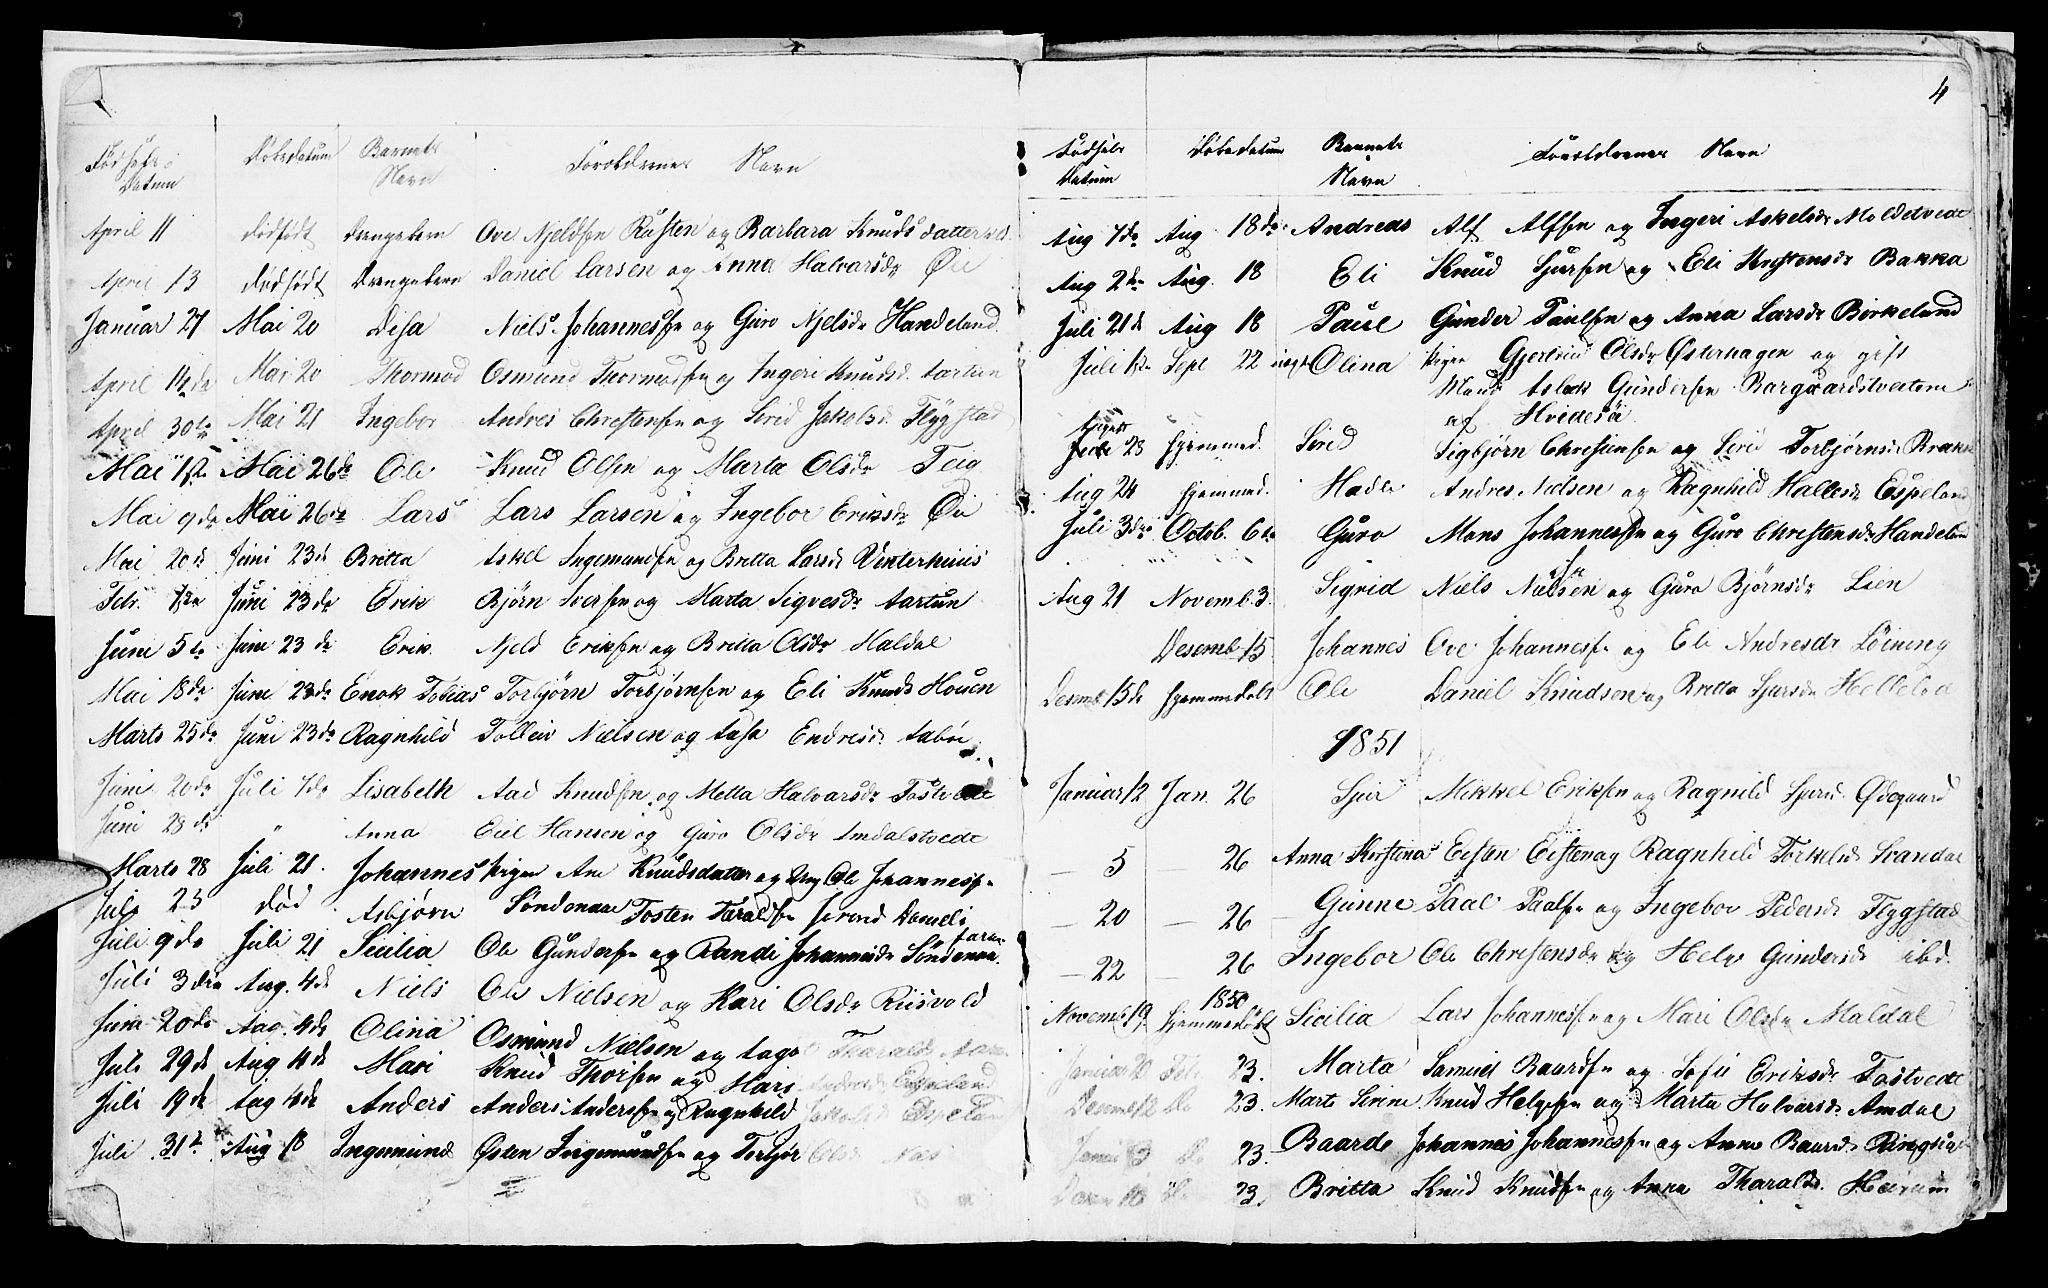 Fødsels Datum Døbedatum Barnets Navn Foreldrenes Navn
April 11 dødfødt Drengebarn Ove Njeldsen Røsten og Barbara Knudsdatter
April 13 dødfødt Drengebarn Daniel Larsen og Anna Halvarsdr Øie
Januar 27 Mai 20 Desa Niels Johannessen og Guro Njelsdr Handeland
April Mai 20 Thormod Osmund Thormodsen og Ingeri Knudsd. Aartun
April 30te Mai 21 Ingebor Andres Chrestensen og Serid Jakobsd. Flygstad
Mai Mai 26de Ole Knud Olsen og Marta Olsdr Teig
Mai 9de Mai 26de Lars Lars Larsen og Ingebor Eriksdr Øie
Mai 20de Juni 23de Britta Askel Ingemundsen og Britta Larsdr Vinterhuus
Febr. Juni 23de Erik Bjørn Iversen og Marta Sigvesdr Aartun
Juni 5te Juni 23de Erik Njeld Eriksen og Britta Olsdr Maldal
Mai 18de Juni 23de Enok Tobias Torbjørn Torbjørnsen og Eli Knuds Houen
Marts 25de Juni 23de Ragnhild Tolleiv Nielsen og Aasa Endresdr Aabøe
Juni 20de Juli 7de Lisabeth Aad Knudsen og Metta Halvarsdr Tostvedt
Juni 28de " Anna Eiel Hansen og Guro Olsdr Amdalstvedt
Marts 28 Juli 21. Johannes Pigen Ane Knudsdatter og Ung Ole Johannessen
Søndenaae
Juli 25 død Asbjørn Tosten Taraldsen Jorand Daniels
Juli 9de Juli 21 Sicilia Ole Gundersen og Randi Johannesdr Søndenaa
Juli 3die Aug. 4de Niels Ole Nielsen og Kari Olsdr Riisvold
Juni 20de Aug. 4de Olina Osmund Nielsen og Aago Tharalds
Juli 29de Aug 4de Mari Knud Thorsen og Mari Andresdr Espeland
Juli 19de Aug 4de Anders Anders Andersen og Ragnhild Jakobsd Espeland
Juli 31te Aug 18 Ingemund Østen Ingemundsen og Torbjør Olsd
4
Fødsels Datum Døbedatum Barnets Navn Foreldrenes Navn
Aug 7de Aug 18de Andreas Alf Alfsen og Ingeri Askelsdr Moldetvedt
Aug 2de Aug. 18 Eli Knud Sjursen og Eli Kristensdr Bakka
Juli 21d Aug 18 Paul Gunder Paulsen og Anna Larsdr Birkeland
Juli Sept 22 uægt Olina Pigen Gjertrud Olsdr Østerhagen og gift
Mand Aslak Gundersen Borgaardstveiten
af Hvidesø
August 23 hjemmed. Serid Sigbjørn Chrestensen og Serid Torbjørnsdr
Aug 24 hjemmed. Hadle Andres Nielsen og Ragnhild Hallesdr Espeland
Juli 3die Octob. 6te Guro Mons Johannessen og Guro Chrestensdr Handeland
Aug 21 Novemb. 3. Sigrid Niels Nielsen og Guro Bjørnsdr Lien
Desemb 15 Johannes Ove Johannessen og Eli Andresdr Løining
Desemb 15de hjemmedøbt Ole Daniel Knudsen og Britta Sjursdr Helleland
1851
Januar 12 Jan. 26 Sjur Mikkel Eriksen og Ragnild Sjursd. Ødegaard
— 5 — 26 Anna Kirstena Eisten Eisten og Ragnhild Torkelsd Svandal
— 20 — 26 Gunne Paal Paalsen og Ingebor Pedersd Flygstad
— 22 — 26 Ingebor Ole Chrestensen og Helge Gundersd ibd.
1850
Novemb 19. hjemmedøbt Sicilia Lars Johannessen og Mari Olsdr Maldal
Januar 20 Feb. 23. Marta Samuel Baardsen og Sofie Eriksdr Tostvedt
Desemb 12 Do 23. Marte Serine Knud Helgesen og Marta Halvarsdr Amdal
Januar 3 Do 23. Baarde Johannes Johannessen og Anna Baardsd
Desem 18 Do 23. Britta Knud Knudsen og Anna Tharalds.